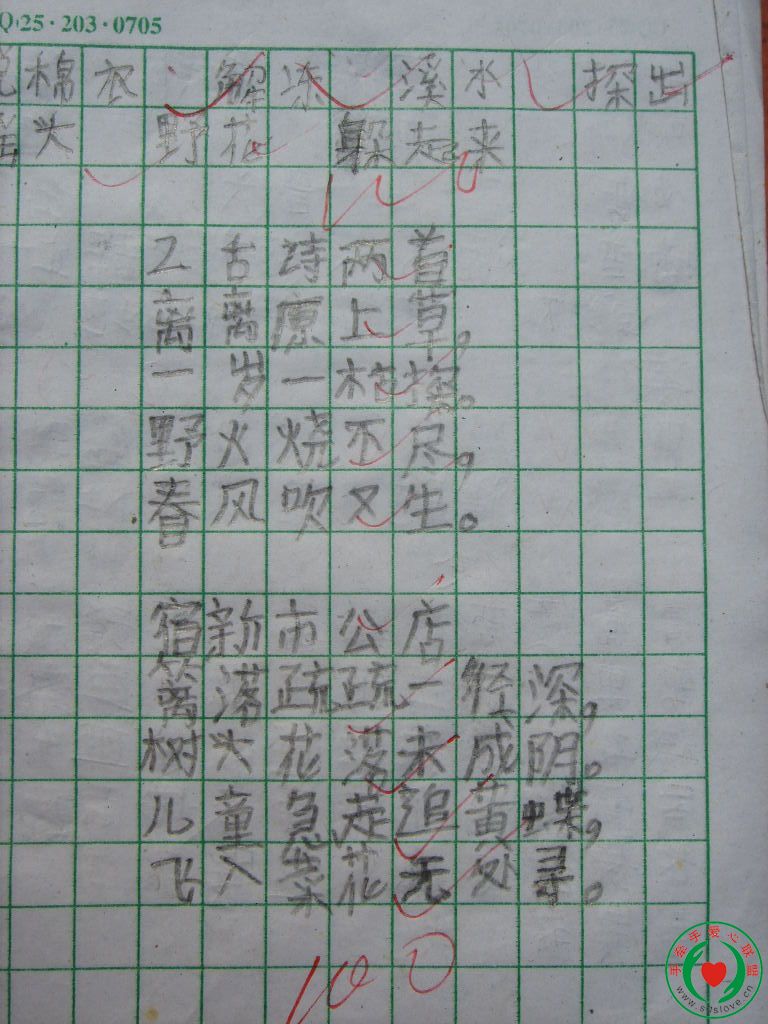 Q·25·203·0705
棉衣 解冻 溪水 探出
头 野花 躲起来
100
2古诗两首
离离原上草,
一岁一枯。
野火烧不尽,
春风吹又生。
宿新市公店
篱落疏疏一径深,
树头花落未成阴。
儿童急走追黄蝶,
飞入菜花无处寻。
100
手牵手爱心联盟
www.sqslove.cn